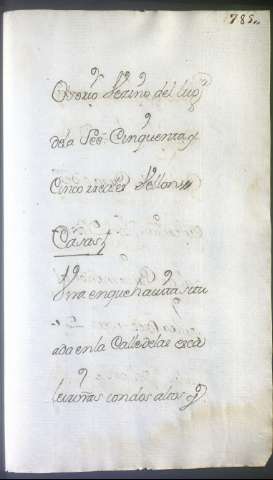 785
Osorio Vezino del lug.r
dela Peô Cinquenta y
Cinco rreales Vellon
Casas
Vna en que havita situ
ada en la Calle de las esca
lerillas con dos altos y